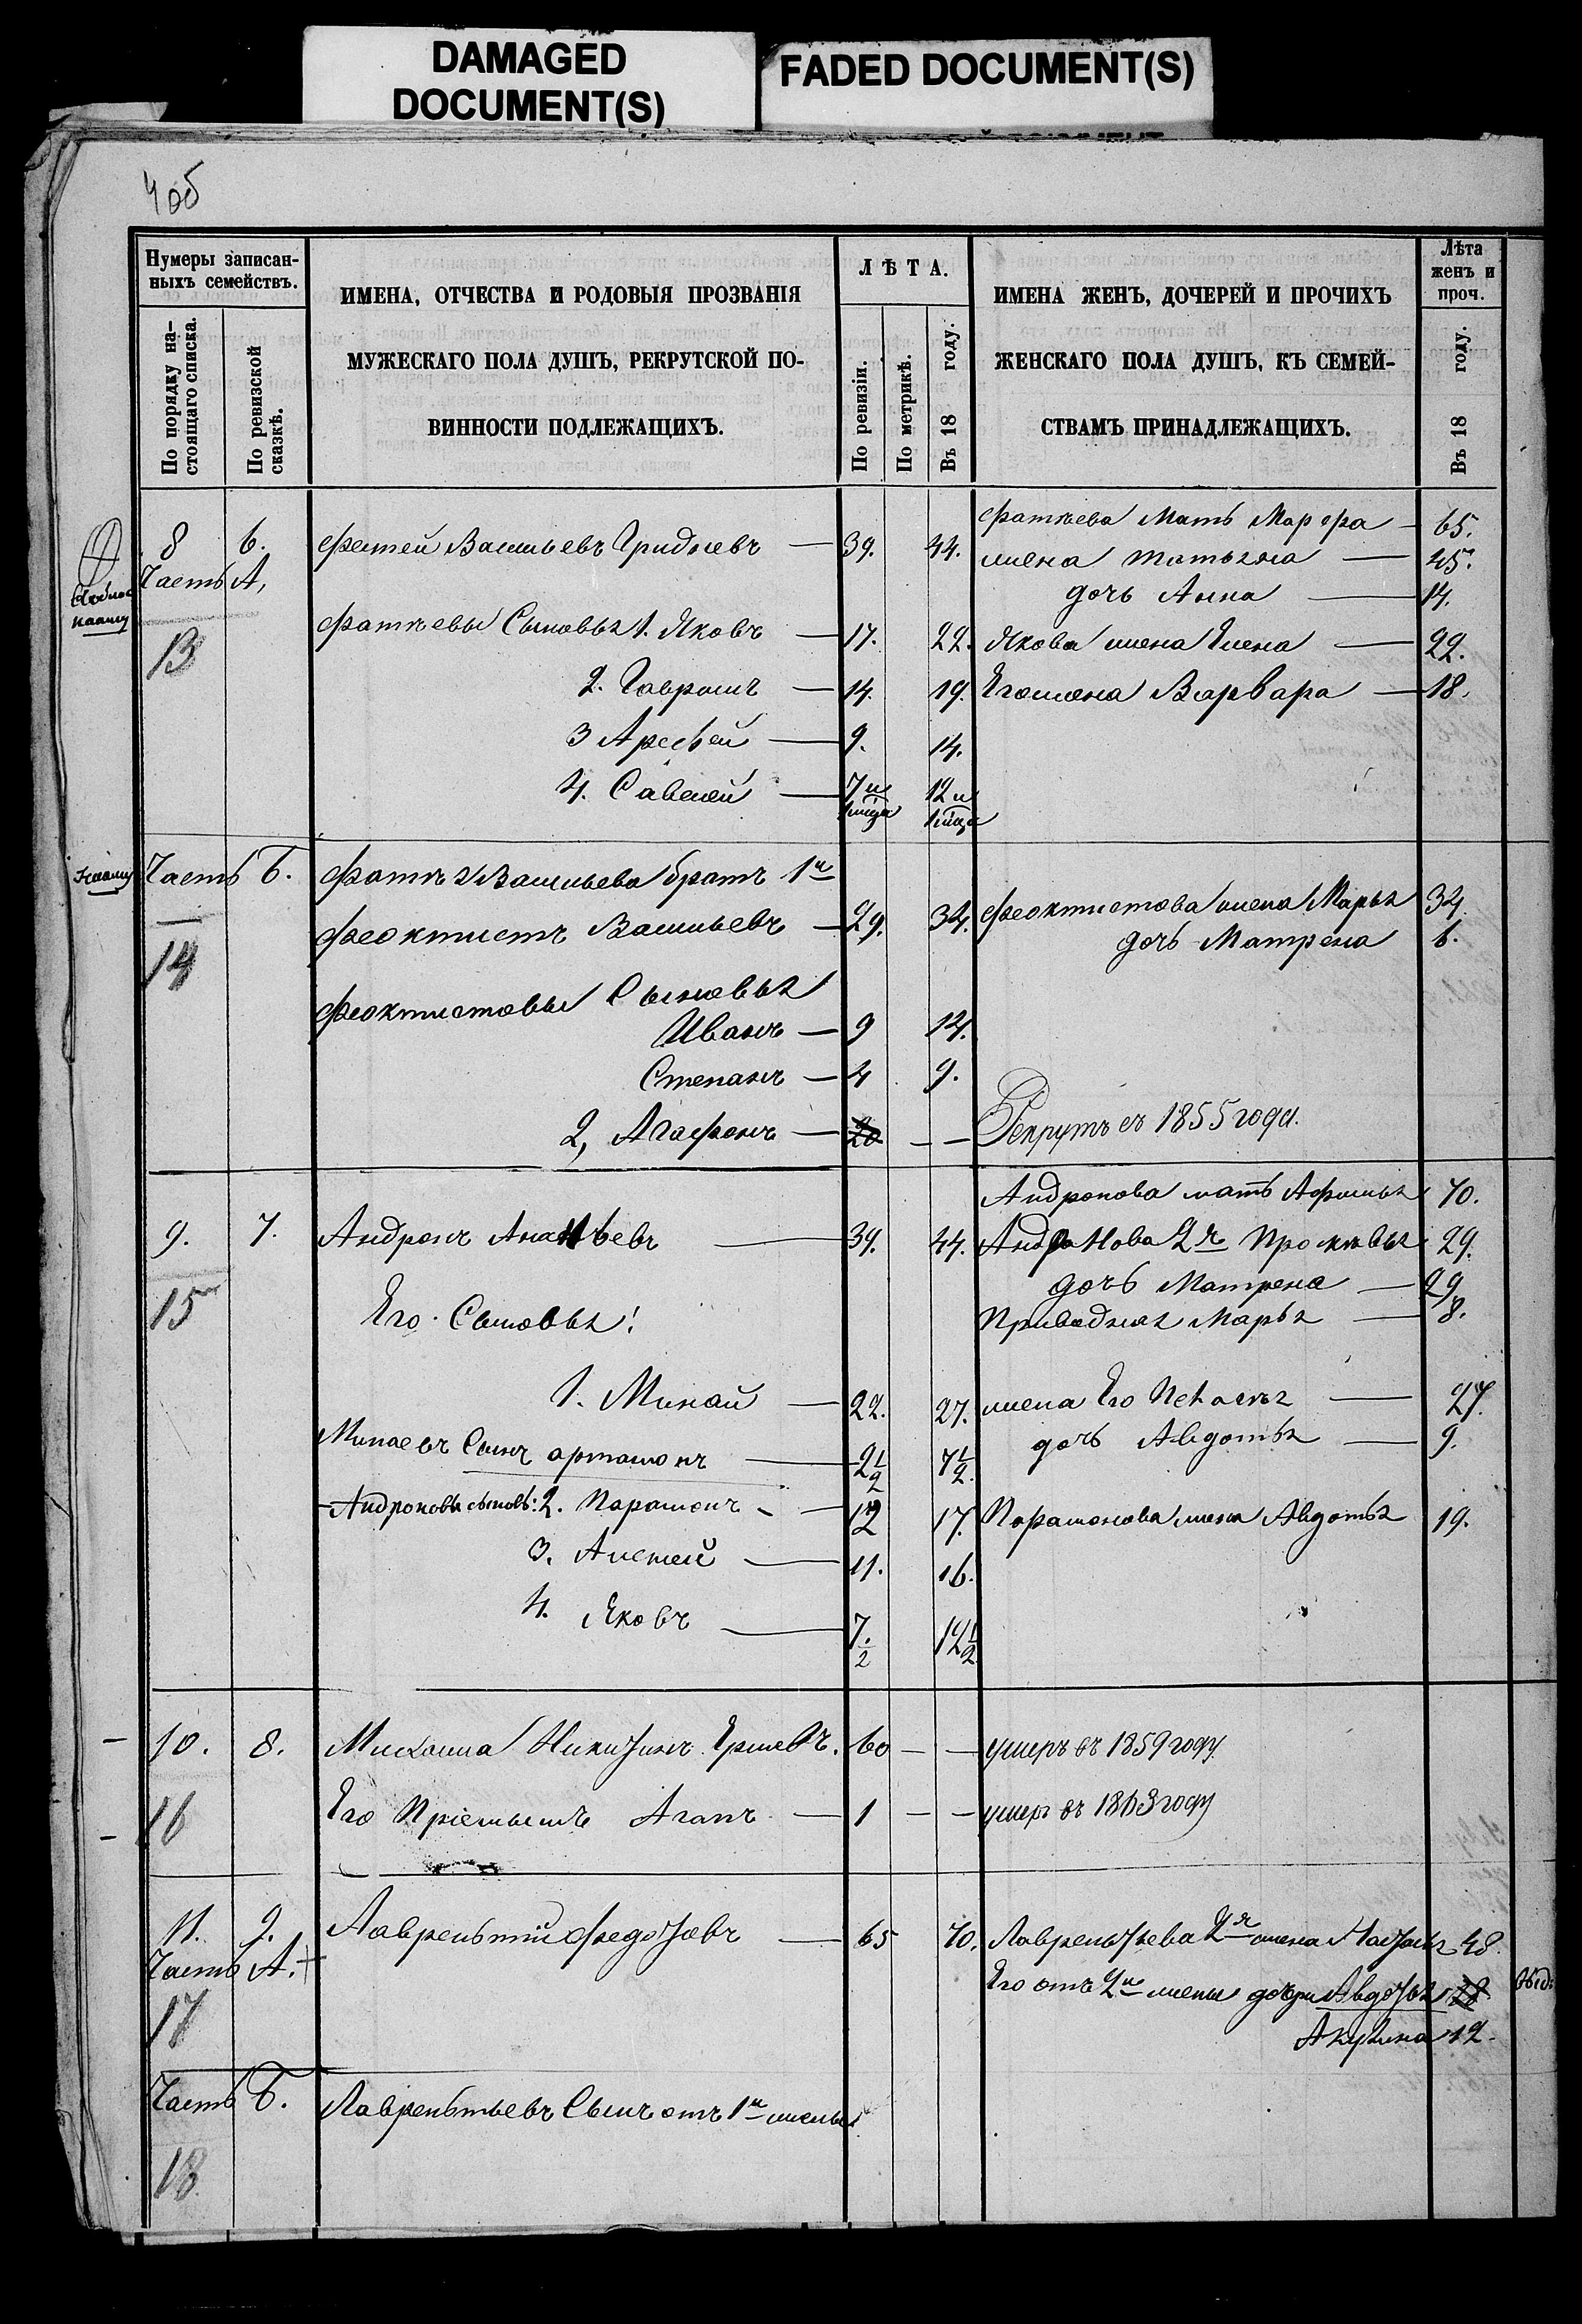 DAMAGED
DOCUMENT(S)
FADED DOCUMENT(S)
4 об
Нумеры записан-
ныхъ семействъ.
По порядку на-
стоящаго списка.
По ревизской
сказкѣ.
ИМЕНА, ОТЧЕСТВА И РОДОВЫЯ ПРОЗВАНІЯ
МУЖЕСКАГО ПОЛА ДУШЪ, РЕКРУТСКОЙ ПО-
ВИННОСТИ ПОДЛЕЖАЩИХЪ.
ЛѢТА.
По ревизіи.
По метрикѣ.
Въ 18 году.
ИМЕНА ЖЕНЪ, ДОЧЕРЕЙ И ПРОЧИХЪ
ЖЕНСКАГО ПОЛА ДУШЪ, КЪ СЕМЕЙ-
СТВАМЪ ПРИНАДЛЕЖАЩИХЪ.
Лѣта
женъ и
проч.
Въ 18 году.
Мать Марфа — 65.
8 6. Васильевъ — 39. 44. жена Татьяна — 45.
Часть А,
дочь Анна — 14.
13
Сыновья 1. Яковъ — 17. 22. Якова жена Елена — 22.
2. Гаврилъ — 14. 19. Его жена Варвара — 18.
3 — 9. 14.
4. Савелей — 7 и 12 и
Часть Б. Васильева братъ 1й
Феоктистъ Васильевъ — 29. 34. Феоктистова жена Марья 34
дочь Матрена 6.
14
Феоктистовы Сыновья
Иванъ — 9 14.
Степанъ — 4 9.
2, Агафонъ — 20 — — Рекрутъ съ 1855 года.
Андронова мать Афимья 70.
9. 7. Андронъ Ананьевъ — 39. 44. Андронова 2я 29.
дочь Матрена — 29
15
Его Сыновья: Приводная Марья — 8.
1. Минай — 22. 27. жена Его — 27.
Минаевъ Сынъ Артамонъ — 2½ 7½ дочь Авдотья — 9.
Андроновы сыновь: 2. Парамонъ — 12 17. Парамонова жена Авдотья 19.
3. — 11. 16.
4. Яковъ — 7½ 12½
10. 8. Михаила Никитинъ — 60 — — умеръ въ 1859 году
16
Его Пріемышъ Агапъ — 1 — — умеръ въ 1863 году
11. 9. Лаврентій Федотовъ — 65 70. Лаврентьева 2я жена Настасья 48.
Часть А.
Его отъ 2й жены дочери Авдотья 28
17
Акулина 12.
Часть Б. Лаврентьевъ Сынъ отъ 1й жены
18.